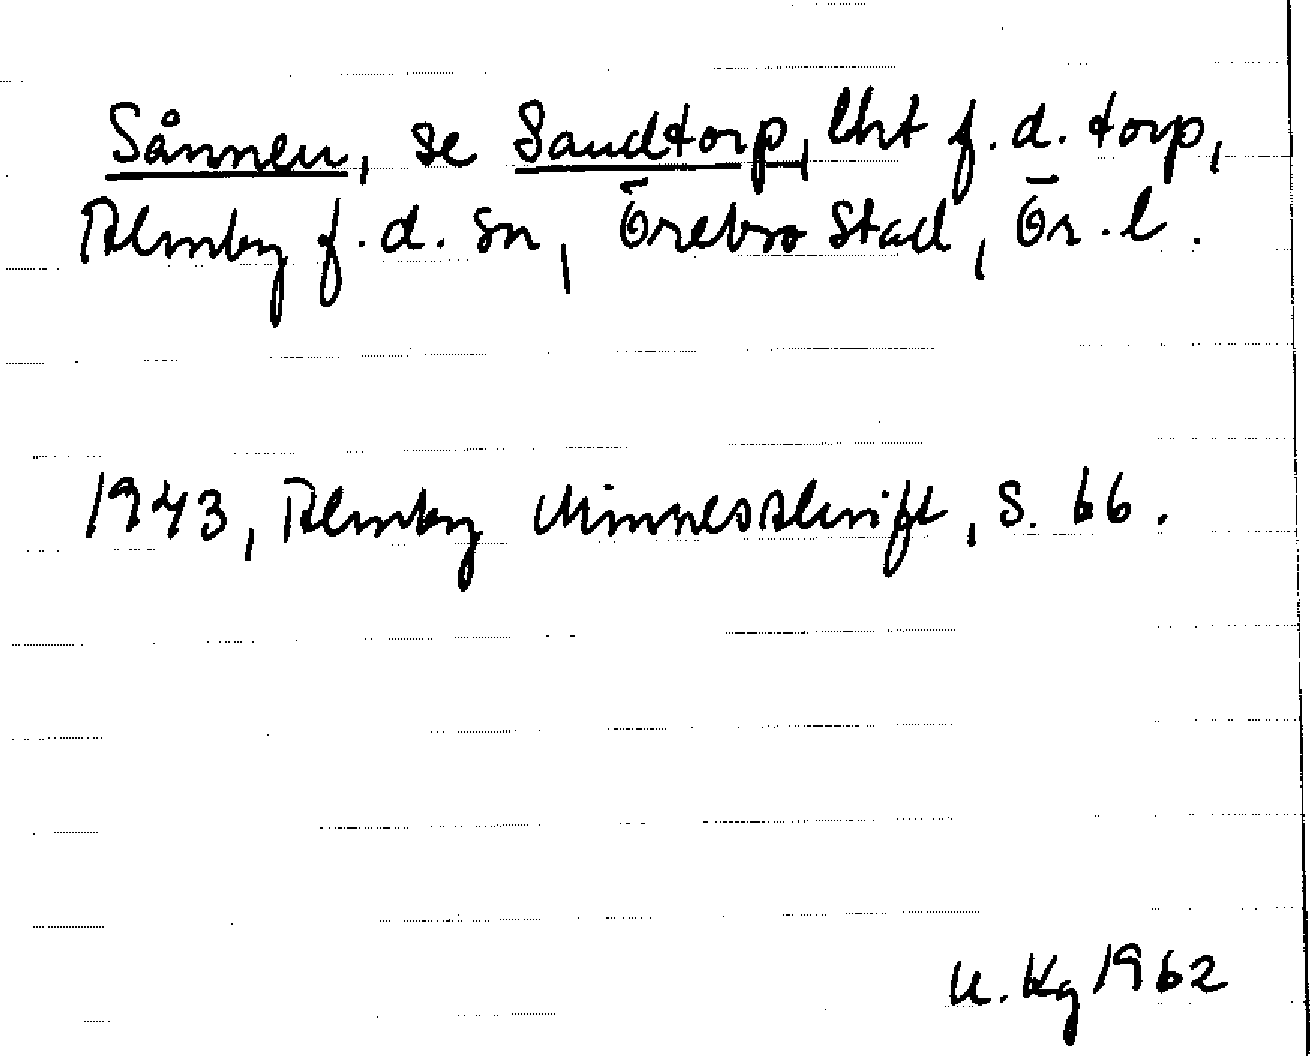 Sånnen, se Sandtorp, lht f.d. torp,
Almby f.d. sn, Örebro stad, Ör. l.
1943, Almby Minnesskrift, s. 66.
U. Kg 1962